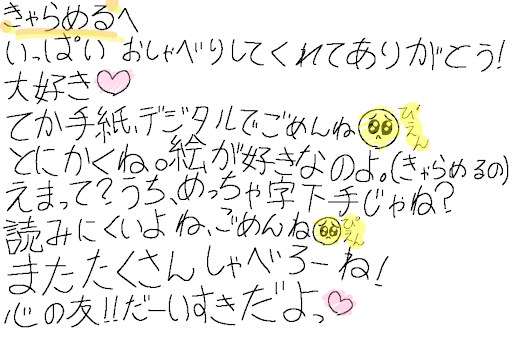 きゃらめるへ
いっぱい おしゃべりしてくれてありがとう!
大好き♡
てか手紙、デジタルでごめんね🥺ぴえん
とにかくね。絵が好きなのよ。(きゃらめるの)
えまって?うち、めっちゃ字下手じゃね?
読みにくいよね、ごめんね🥺ぴえん
またたくさんしゃべろーね!
心の友!!だーいすきだよっ♡